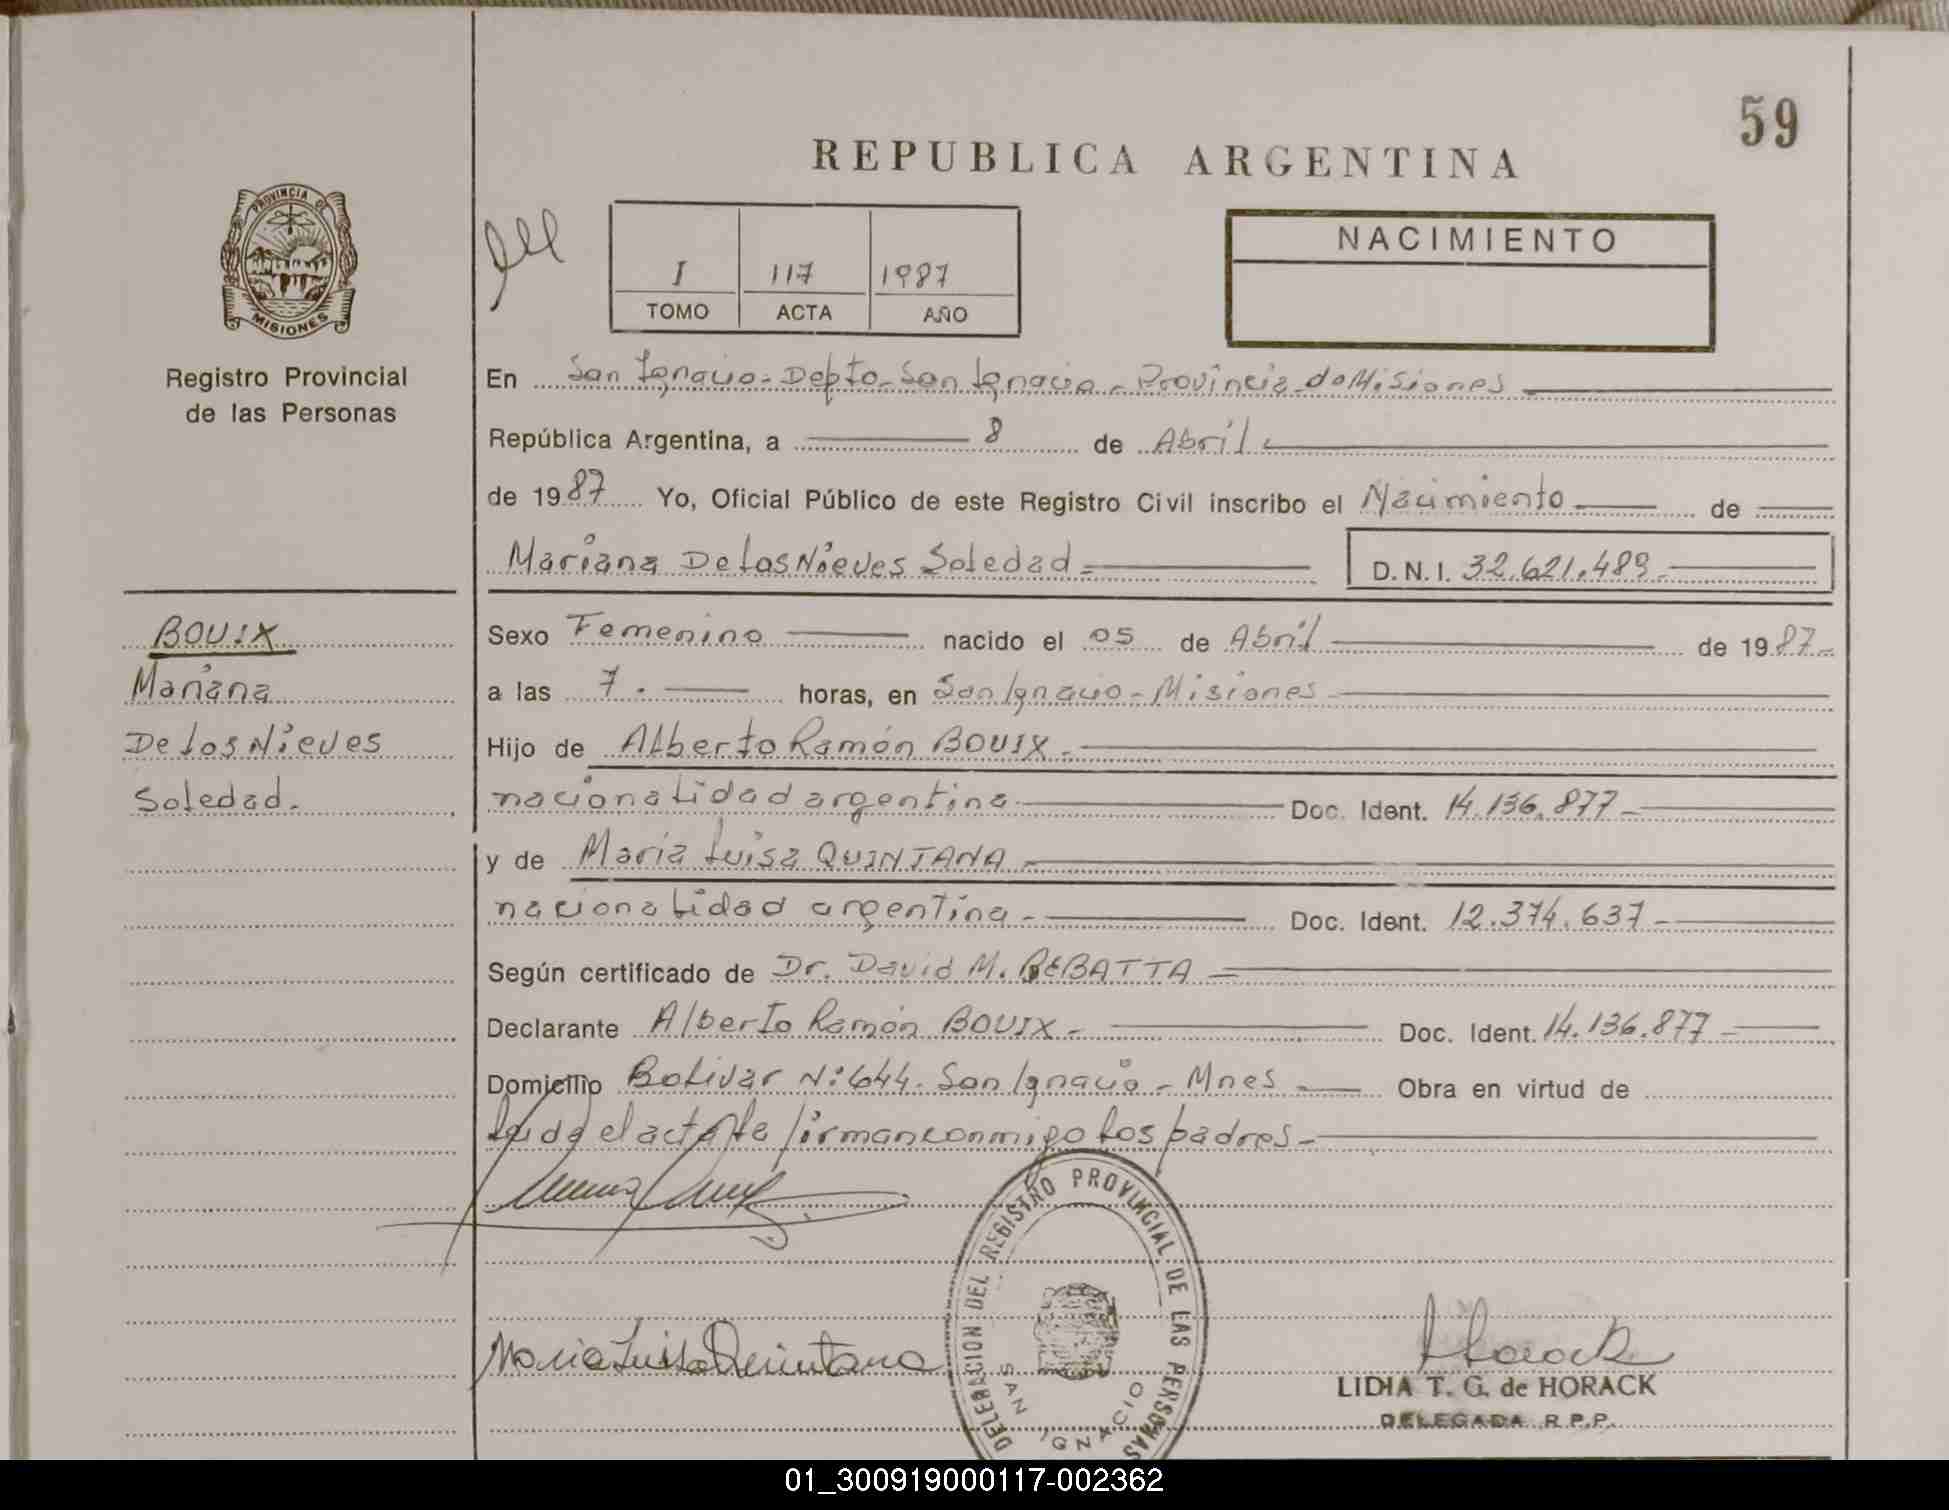 59
REPUBLICA ARGENTINA
PROVINCIA DE
MISIONES
Registro Provincial
de las Personas
I 117 1987
TOMO ACTA AÑO
NACIMIENTO
En San Ignacio - Depto - San Ignacio - Provincia de Misiones
República Argentina, a 8 de Abril
de 1987 Yo, Oficial Público de este Registro Civil inscribo el Nacimiento de
Mariana De Las Nieves Soledad D.N.I. 32.621.489
BOUIX
Mariana
De las Nieves
Soledad.
Sexo Femenino nacido el 05 de Abril de 1987
a las 7. horas, en San Ignacio - Misiones
Hijo de Alberto Ramón BOUIX
nacionalidad argentina Doc. Ident. 14.136.877
y de María Luisa QUINTANA
nacionalidad argentina Doc. Ident. 12.374.637
Según certificado de Dr. David M. BEBATTA
Declarante Alberto Ramón BOUIX Doc. Ident. 14.136.877
Domicilio Bolivar Nº 644. San Ignacio - Mnes Obra en virtud de
Leida el acta la firman conmigo los padres
Maria Luisa Quintana
DELEGACION DEL REGISTRO PROVINCIAL DE LAS PERSONAS
SAN IGNACIO
Horack
LIDIA T. G. de HORACK
DELEGADA R.P.P.
01_300919000117-002362